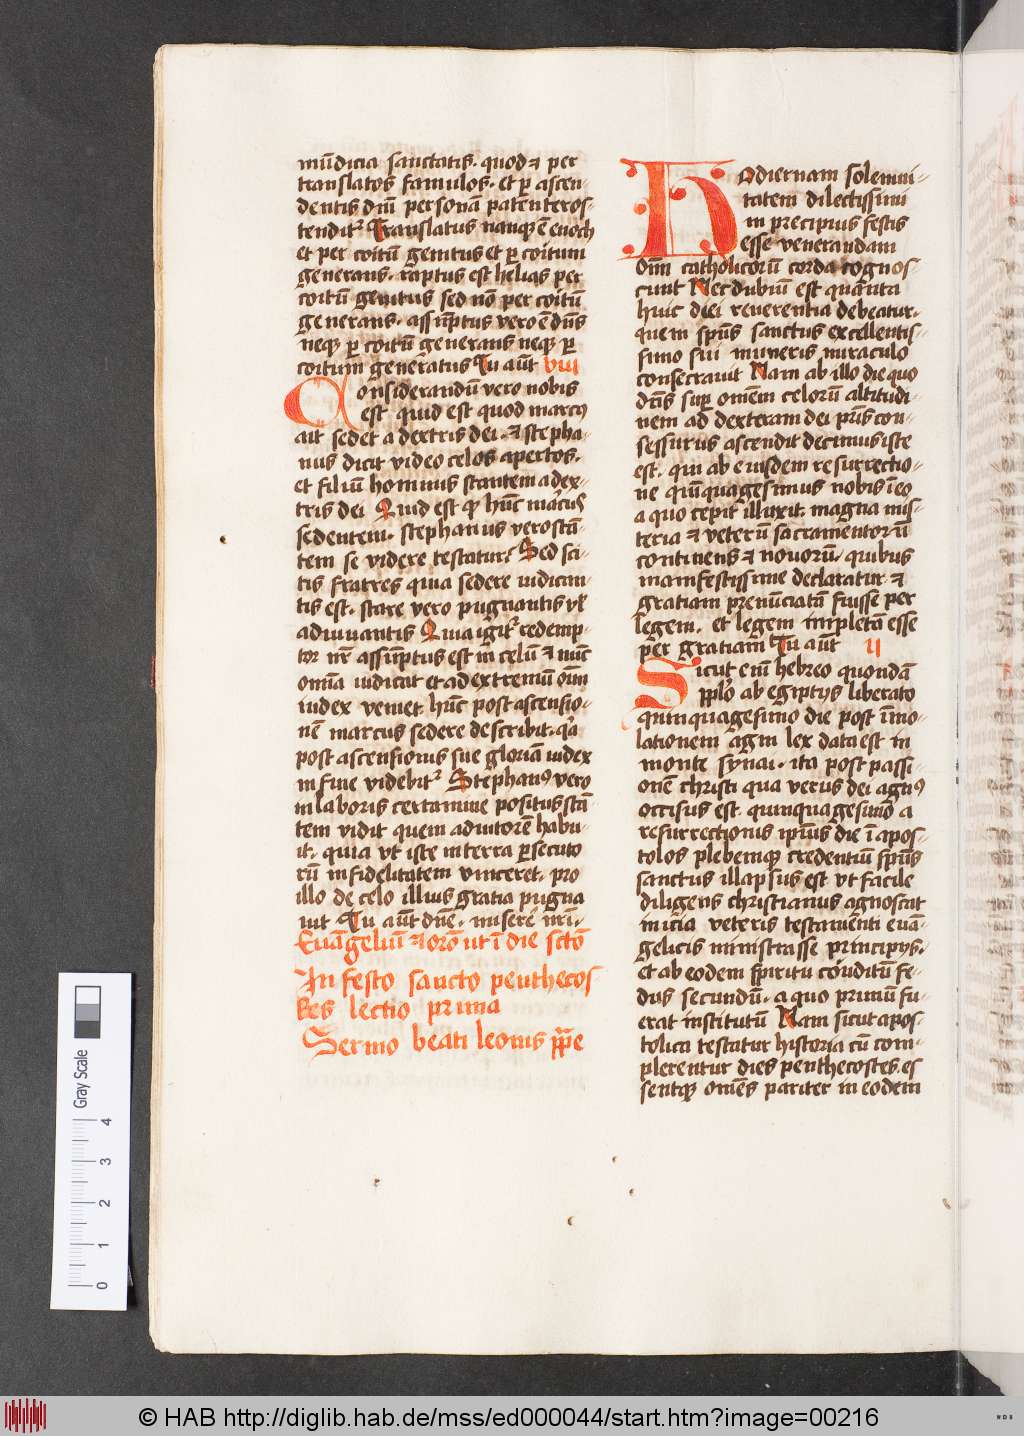 mūdicia sanctatis. quod ⁊ per
translatos famulos. et ꝑ ascen-
dentis dn̄i personā patenter os-
tendit᷑ Translatus nanqȝ ē enoch
et per coitū genitus et ꝑ coitum
generans. raptus est helias per
coitū genitus sed nō per coitū
generans. assūptus vero ē dn̄s
neqȝ ꝑ coitū generans neqȝ ꝑ
coitum generatus Tu aūt viii
Considerandū vero nobis
est quid est quod marcꝰ
ait sedet a dextris dei. ⁊ stepha-
nus dicit video celos apertos.
et filiū hominis stantem a dex-
tris dei Quid est qȝ hūc marcus
sedentem. stephanus vero stā-
tem se videre testatur? Sed sci-
tis fratres quia sedere iudican-
tis est. stare vero pugnantis vl̄
adiuuantis Quia igit᷑ redemp-
tor nr̄ assūptus est in celū ⁊ nūc
om̄ia iudicat et ad extremū om̄
iudex veniet. hūc post ascensio-
nē marcus sedere describit. qꝛ
post ascensionis sue gloriā iudex
in fine videbit᷑ Stephanꝰ vero
in laboris certamine positus stā-
tem vidit quem adiutorē habu-
it. quia vt iste in terra ꝑsecuto
rū infidelitatem vinceret. pro
illo de celo illius gratia pugna
uit Tu aūt dn̄e. miserē nr̄i.
Euāgeliū ⁊ orō ut ī die sctō
In festo sancto penthecos
tes lectio prima
Sermo beati leonis pp̄e
Hodiernam solemni-
tatem dilectissimi
in precipuis festis
esse venerandam
Om̄ catholicorū corda cognos-
cunt Nec dubiū est quāta
huic diei reuerentia debeatur.
quem sp̄us sanctus excellentis-
simo sui muneris miraculo
consecrauit Nam ab illo die quo
dn̄s sup omēm celorū altitudi-
nem ad dexteram dei pr̄is con-
sessurus ascendit decimus iste
est. qui ab eiusdem resurrectio-
ne quīquagesimus nobis ī eo
a quo cepit illuxit. magna mis-
teria ⁊ veterū sacramentorū
continens ⁊ nouorū. quibus
manifestissime declaratur ⁊
gratiam prenūciatā fuisse per
legem. et legem impletā esse
per gratiam Tu aūt ii
Sicut enī hebreo quondā
pp̄lo ab egiptijs liberato
quinquagesimo die post īmo-
lationem agni lex data est in
monte synai. ita post passi-
onē christi qua verus dei agnꝰ
occisus est. quinquagesimo a
resurrectionis ip̄ius die ī apos-
tolos plebemqȝ credentiū sp̄us
sanctus illapsus est vt facile
diligens christianus agnoscat
inicia veteris testamenti euā-
gelicis ministrasse principijs.
et ab eodem spiritu cōditū fe-
dus secundū. a quo primū fu-
erat institutū Nam sicut apos-
tolica testatur historia cū com-
plerentur dies penthecostes. es
sentqȝ omēs pariter in eodem
Gray Scale
0 1 2 3 4
© HAB http://diglib.hab.de/mss/ed000044/start.htm?image=00216